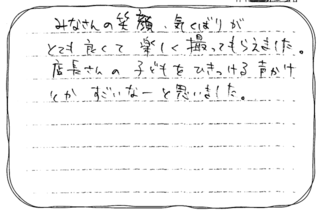 みなさんの笑顔、気くばりが
とても良くて 楽しく撮ってもらえました。
店長さんの子どもをひきつける声かけ
とか すごいなーと思いました。